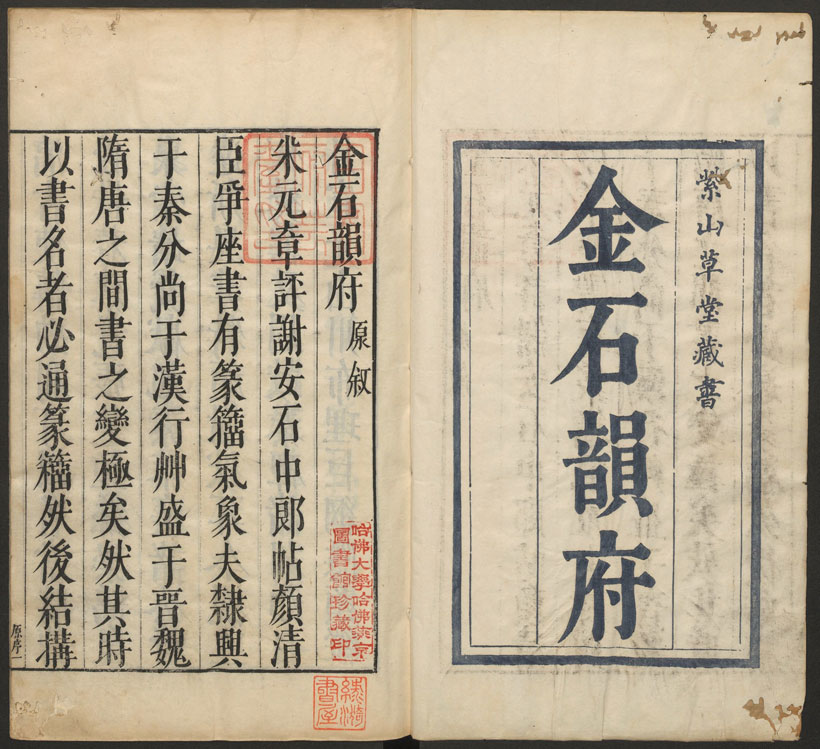 紫山草堂藏書
金石韻府
金石韻府 原叙
米元章評謝安石中郎帖顏清
臣爭座書有篆籀氣象夫隸興
于秦分尚于漢行艸盛于晉魏
隋唐之間書之變極矣然其時
以書名者必通篆籀然後結構
原序一
哈佛大學哈佛燕京
圖書館珍藏印